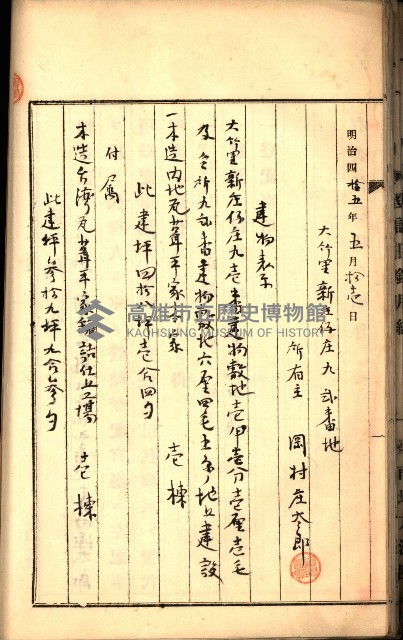 明治四拾五年五月拾壱日
大竹里新庄仔庄九弍番地
所有主 岡村庄太郎
建物表示
大竹里新庄仔庄九壱番建物敷地壱甲壱分壱厘壱毛
及仝所九弍番建物敷地六厘四毛五糸ノ地上建設
一木造内地瓦葺平家 壱棟
此建坪四拾八坪壱合四勺
付属
木造台湾瓦葺平家缶詰仕上場 壱棟
此建坪参拾九坪九合参勺
高雄市立歷史博物館
KAOHSIUNG MUSEUM OF HISTORY